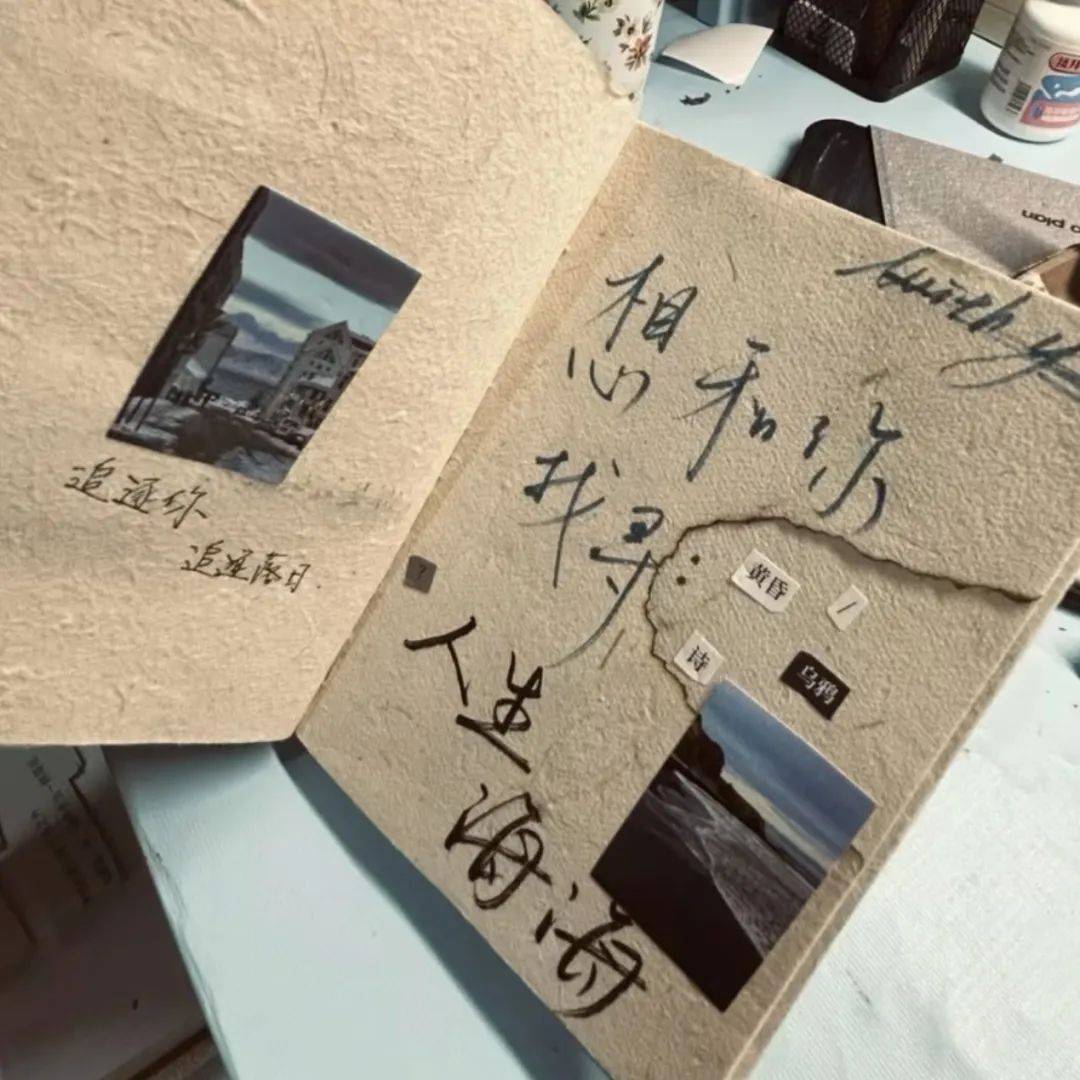 追逐你
追逐落日.
with
想和你
找寻:
黄昏 /
诗 乌鸦
?
人生
海海
plan